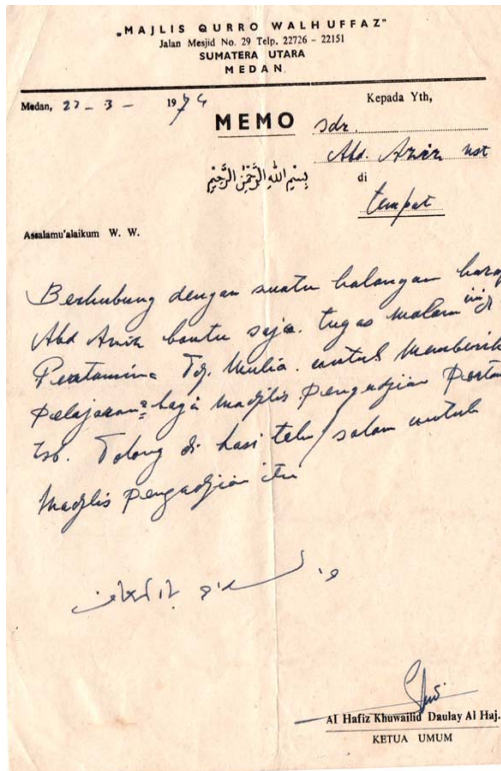 „MAJLIS QURRO WALHUFFAZ”
Jalan Mesjid No. 29 Telp. 22726 – 22151
SUMATERA UTARA
MEDAN
Medan, 27 – 3 – 1974
Kepada Yth,
MEMO
sdr.
Abd. Aziz nst
بِسْمِ اللهِ الرَّحْمٰنِ الرَّحِيْمِ
di
tempat
Assalamu'alaikum W. W.
Berhubung dengan suatu halangan harap
Abd Aziz bantu saja. tugas malam inj
Pertamina Tdj. Mulia. untuk Memberik
pelajaran² bagi madjlis pengadjian Pertam
tsb. Tolong di kasi salam untuk
Madjlis pengadjian itu
Al Hafiz Khuwailid Daulay Al Haj.
KETUA UMUM